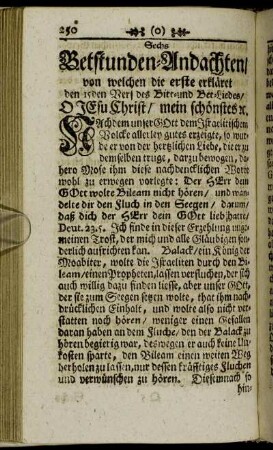 250 (o)
Sechs
Betstunden-Andachten/
von welchen die erste erkläret
den 1sten Vers des Bitt- und Bet-Liedes/
O JEsu Christ/ mein schönstes ꝛc.
NAchdem unser GOtt dem Israelitischem
Volcke allerley gutes erzeigte, so wur-
de er von der hertzlichen Liebe, die er zu
demselben truge, darzu bewogen, da-
hero Mose ihm diese nachdencklichen Worte
wohl zu erwegen vorlegte: Der HErr dein
GOtt wolte Bileam nicht hören/ und wan-
delte dir den Fluch in den Seegen/ darum/
daß dich der HErr dein GOtt lieb hatte/
Deut. 23. 5. Ich finde in dieser Erzehlung unge-
meinen Trost, der mich und alle Gläubigen son-
derlich aufrichten kan. Balack/ ein König der
Moabiter, wolte die Israeliten durch den Bi-
leam/ einen Propheten, lassen verfluchen, der sich
auch willig dazu finden liesse, aber unser GOtt,
der sie zum Seegen setzen wolte, that ihm nach-
drücklichen Einhalt, und wolte also nicht ver-
statten noch hören/ weniger einen Gefallen
daran haben an dem Fluche/ den der Balack zu
hören begierig war, deswegen er auch keine Un-
kosten sparte, den Bileam einen weiten Weg
herholen zu lassen, nur dessen kräfftiges Fluchen
und verwünschen zu hören. Diesemnach so
hin-